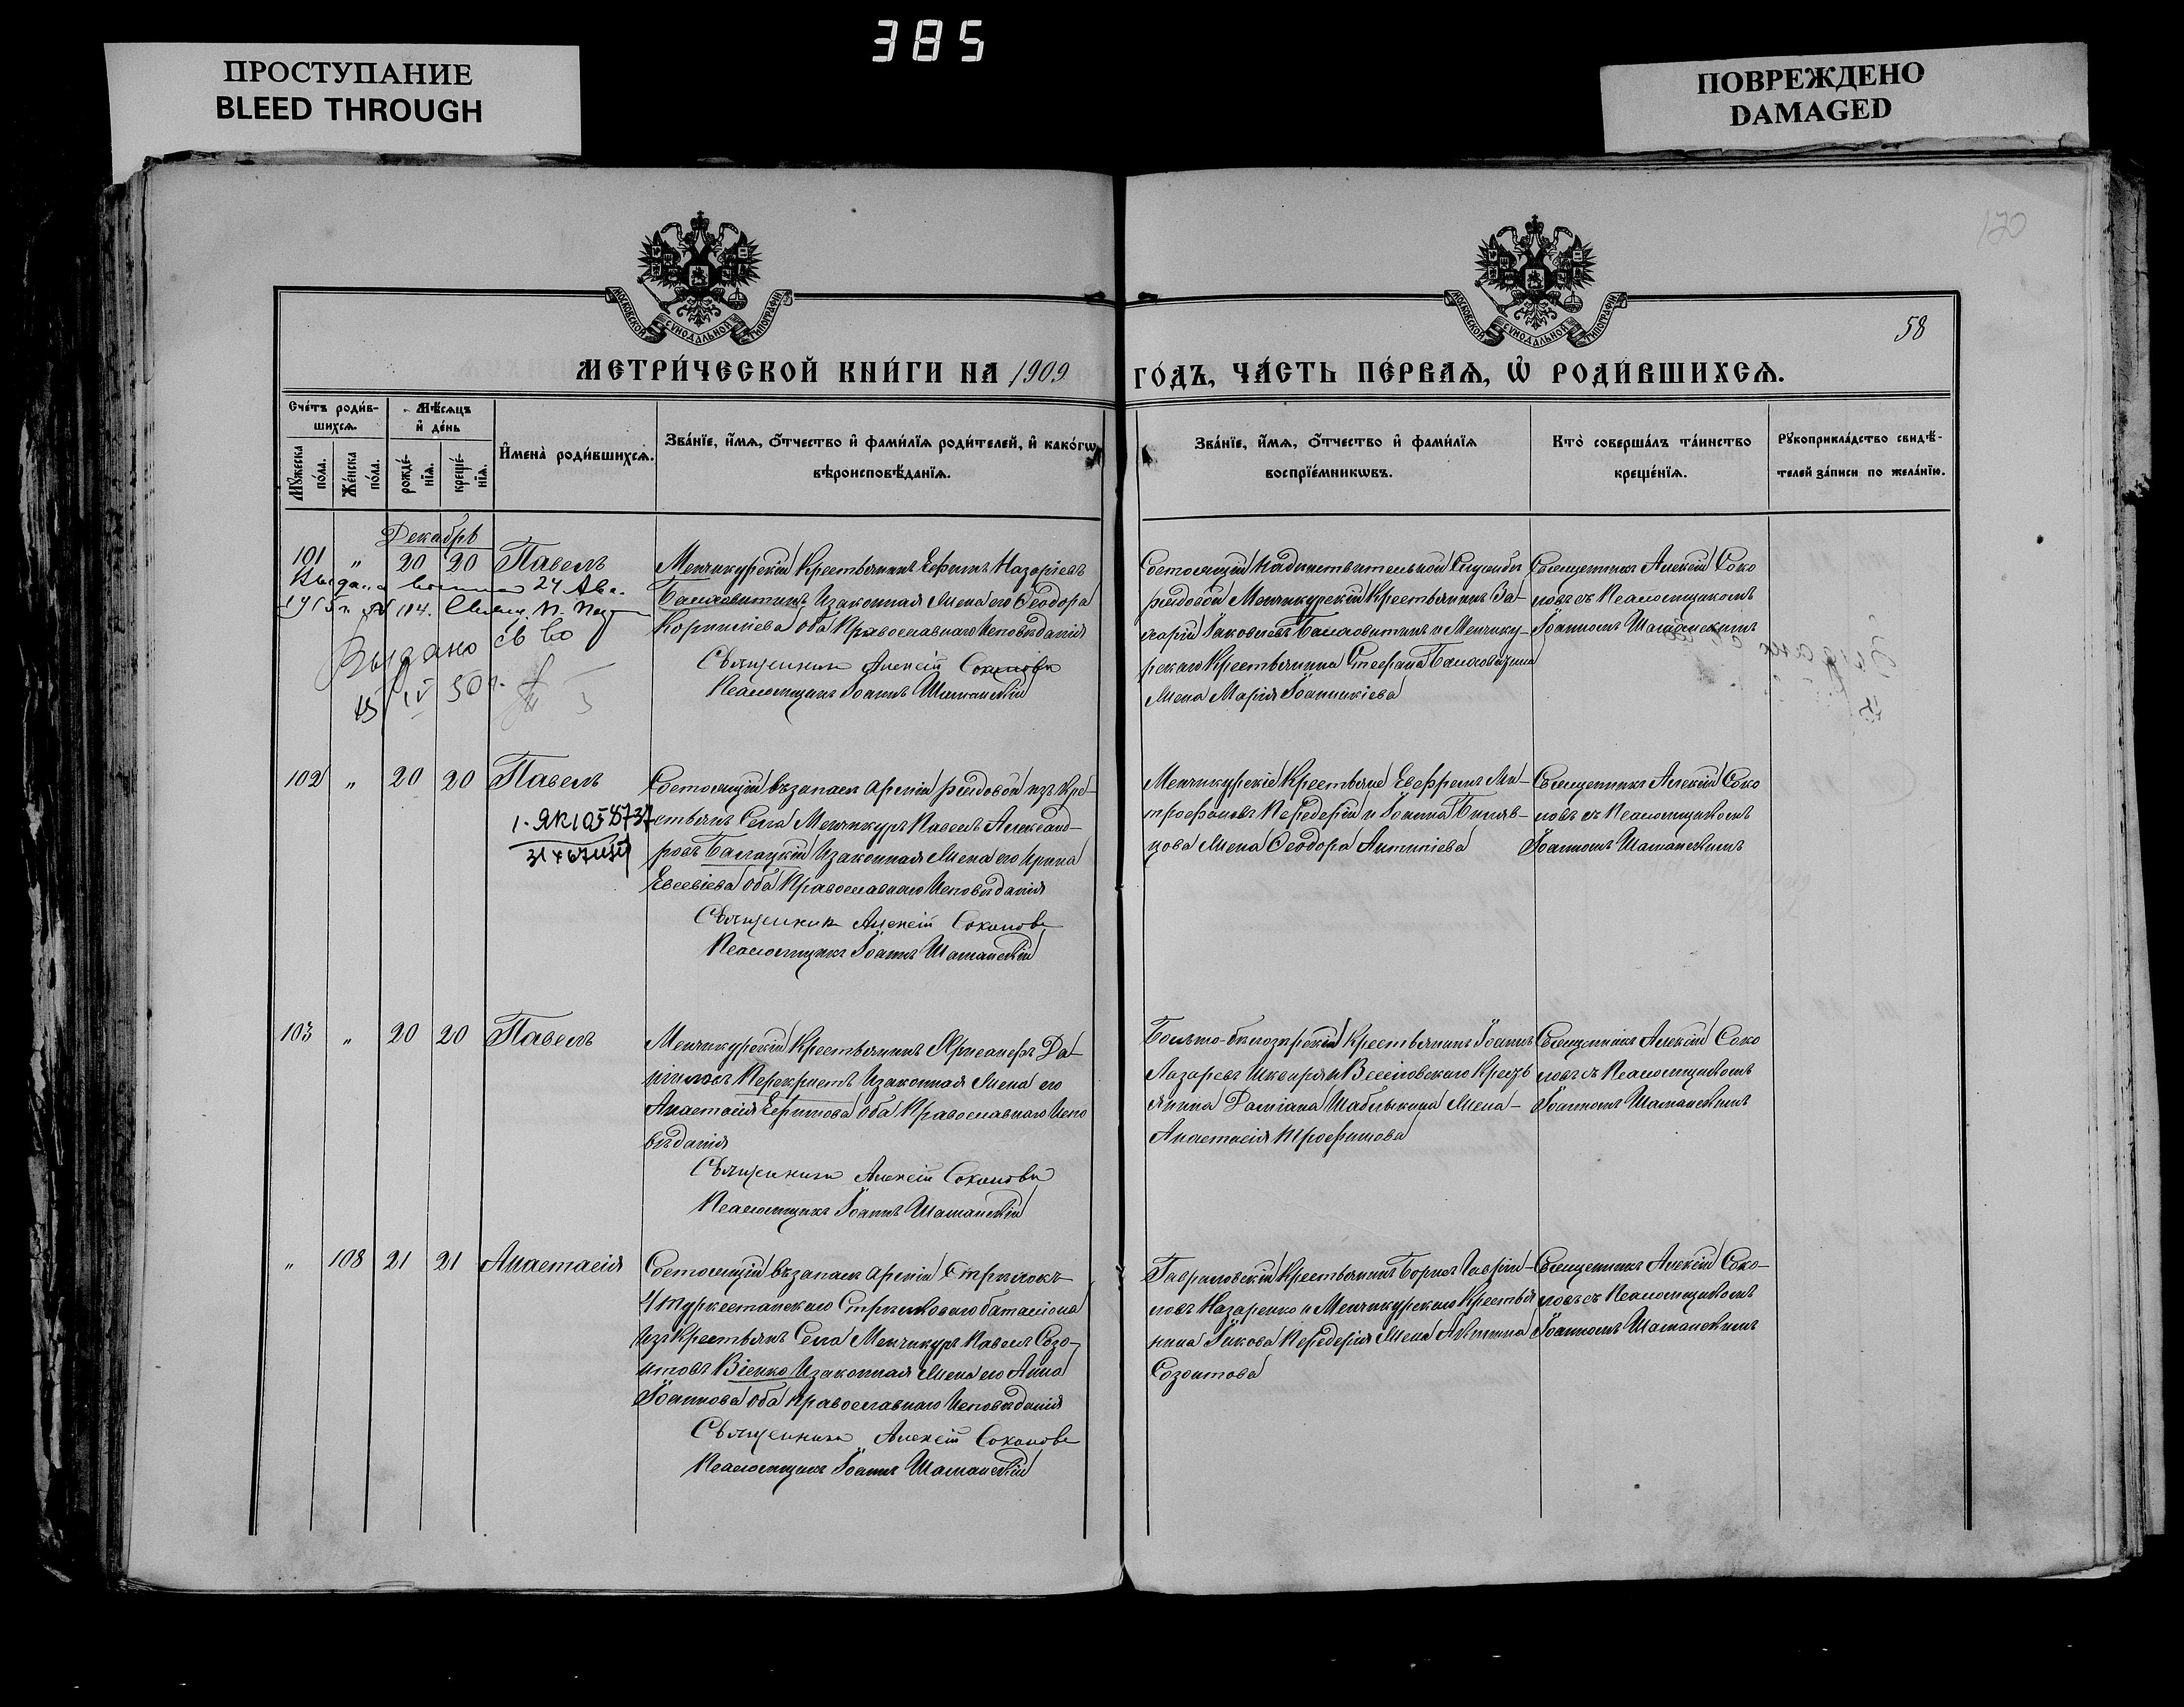 385
ПРОСТУПАНИЕ
BLEED THROUGH
ПОВРЕЖДЕНО
DAMAGED
120
МОСКОВСКОЙ СУНОДАЛЬНОЙ ТИПОГРАФІИ
МОСКОВСКОЙ СУНОДАЛЬНОЙ ТИПОГРАФІИ
58
МЕТРИ́ЧЕСКОЙ КНИ́ГИ НА 1909
ГО́ДЪ, ЧА́СТЬ ПЕ́РВАѦ, Ѡ҆ РОДИ́ВШИХСѦ.
Сче́тъ роди́в-
шихсѧ.
Мꙋ́жеска по́ла.
Же́нска по́ла.
Мѣ́сѧцъ
и҆ де́нь
рожде́-
нїѧ.
креще́-
нїѧ.
И҆мена̀ роди́вшихсѧ.
Зва́нїе, и҆́мѧ, ѻ҆́тчество и҆ фами́лїѧ роди́телей, и҆ како́гѡ
вѣроисповѣ́данїѧ.
Зва́нїе, и҆́мѧ, ѻ҆́тчество и҆ фами́лїѧ
воспрїе́мникѡвъ.
Кто̀ соверша́лъ та́инство
креще́нїѧ.
Рꙋкоприкла́дство свидѣ́-
телей за́писи по жела́нїю.
Декабрь
101 " 20 20 Павелъ
Выдана 24 Авг.
1915 г. № 114.
Выдано св во
15 IV 50 г.
Менчикурскій Крестьянинъ Ефимъ Назаріевъ
Балковитинъ Изаконная Жена его Ѳеодора
Корнилiева оба Православнаго Исповѣданія
Священникъ Алексій Соколовъ
Псаломщикъ Іоаннъ Шаманскій
Состоящій Надѣйствительной Службѣ
рядовой Менчикурскій Крестьянинъ За-
харій Іаковлевъ Балковитинъ и Менчику-
рскаго Крестьянина Стефана Балковитина
Жена Марія Іоанникіева
Священникъ Алексій Соко
ловъ съ Псаломщикомъ
Іоанномъ Шаманскимъ
102 " 20 20 Павелъ
Состоящій взапасѣ арміи рядовой изъ Кре-
стьянъ Села Менчикуръ Павелъ Александ-
ровъ Балацкій Изаконная Жена его Ирина
Евсевіева оба Православнаго Исповѣданія
Священникъ Алексій Соколовъ
Псаломщикъ Іоаннъ Шаманскій
Менчикурскіе Крестьяне Евфремъ Ми-
трофановъ Передерій и Іоанна
Жена Ѳеодора Антипіева
Священникъ Алексій Соко
ловъ съ Псаломщикомъ
Іоанномъ Шаманскимъ
103 " 20 20 Павелъ
Менчикурскій Крестьянинъ Да-
Перекрестъ Изаконная Жена его
Анастасія Ефимова оба Православнаго Испо
вѣданія
Священникъ Алексій Соколовъ
Псаломщикъ Іоаннъ Шаманскій
Больше-бѣлозерскій Крестьянинъ Іоаннъ
Лазаревъ Шкваря и Веселовскаго Кресть
янина Даміана Шаблыкина Жена-
Анастасія Трофимова
Священникъ Алексій Соко
ловъ съ Псаломщикомъ
Іоанномъ Шаманскимъ
" 108 21 21 Анастасія
Состоящій взапасѣ арміи Стрѣлокъ
4 Туркестанскаго Стрѣлковаго баталіона
Изъ Крестьянъ Села Менчикуръ Павелъ Созо-
нтовъ Віенко Изаконная Жена его Анна
Іоаннова оба Православнаго Исповѣданія
Священникъ Алексій Соколовъ
Псаломщикъ Іоаннъ Шаманскій
Гавриловскій Крестьянинъ Борисъ Гаврии-
ловъ Назаренко и Менчикурскаго Крестья
нина Іакова Передерія Жена
Созонтова
Священникъ Алексій Соко-
ловъ съ Псаломщикомъ
Іоанномъ Шаманскимъ